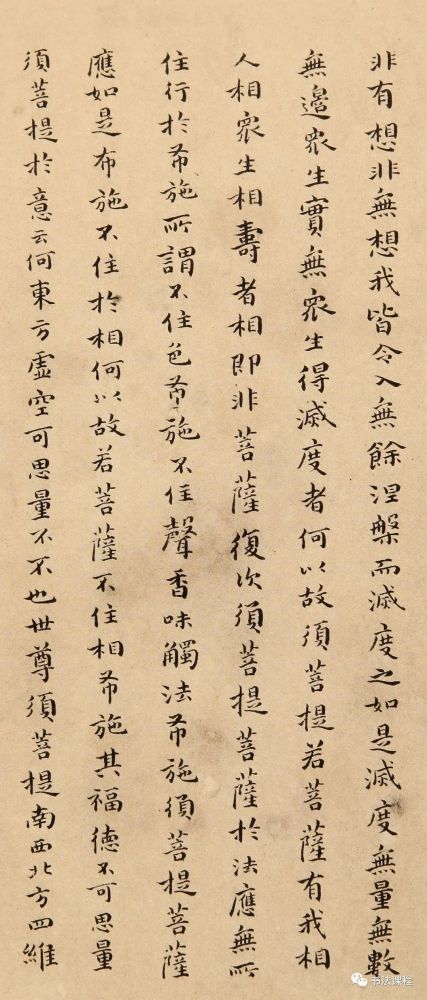 非有想非無想我皆令入無餘涅槃而滅度之如是滅度無量無數
無邊眾生實無眾生得滅度者何以故須菩提若菩薩有我相
人相眾生相壽者相即非菩薩復次須菩提菩薩於法應無所
住行於布施所謂不住色布施不住聲香味觸法布施須菩提菩薩
應如是布施不住於相何以故若菩薩不住相布施其福德不可思量
須菩提於意云何東方虛空可思量不不也世尊須菩提南西北方四維
书法课程